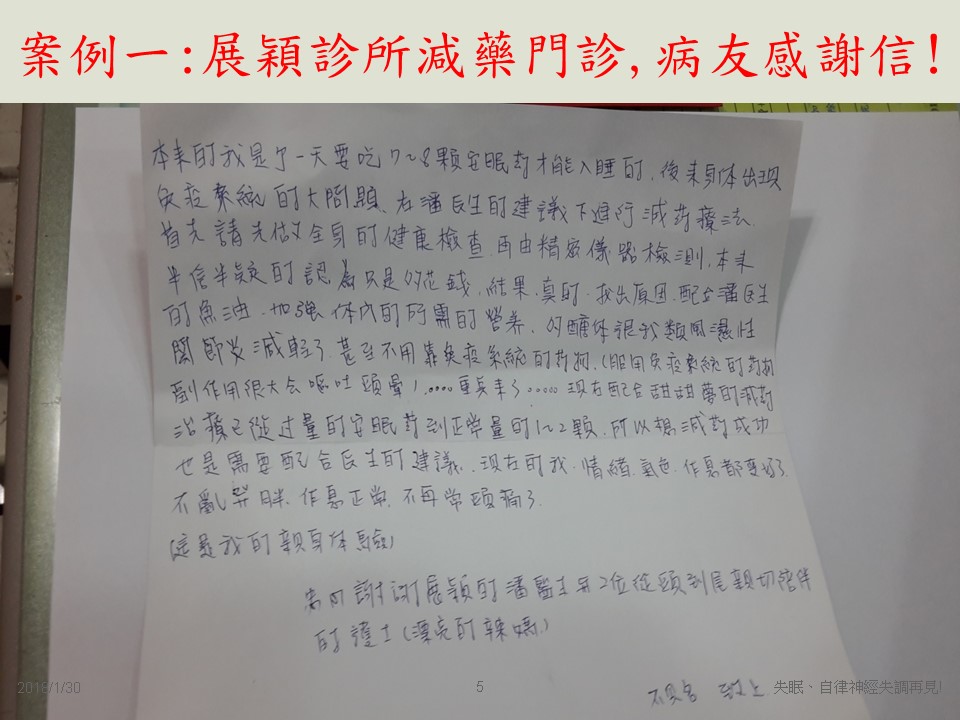 案例一:展穎診所減藥門診,病友感謝信!
本來的我是了一天要吃7~8顆安眠葯才能入睡的,後來身体出現
免疫系統的大問題,在潘医生的建議下進行減葯療法.
首先請先做全身的健康檢查,再由精密儀器檢測,本來
半信半疑的認為只是多花錢,結果,真的,找出原因,配合潘医生
的魚油,加強体內的所需的營养,
関節炎減輕了,甚至不用靠免疫系統的葯物,(服用免疫系統的葯物
副作用很大会嘔吐頭暈)....重哭來了.....現在配合甜甜夢的減葯
治療已從过量的安眠葯到正常量的1~2顆,所以想減葯成功
也是需要配合医生的建議,現在的我,情緒,氣色,作息都變好了
不亂發胖,作息正常,不再常頭痛了.
(這是我的親身体驗)
謝謝展穎的潘醫生与2位從頭到尾親切陪伴
的護士(漂亮的辣媽)
不具名 敬上
2018/1/30
5
失眠、自律神經失調再見!